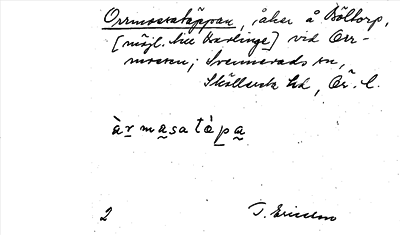 Orrmossatäppan, åker å Böltorp,
[möjl. till Karlinge] vid Orr-
mossen; Svennerads sn,
Skölluns hd, Ör. l.
àr masatòpa
2 T. Ericsson